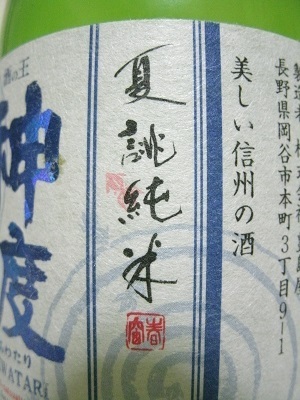 長野県岡谷市本町3丁目9-1
美しい信州の酒
夏誂純米
酒の王
神渡
みわたり
WATARI